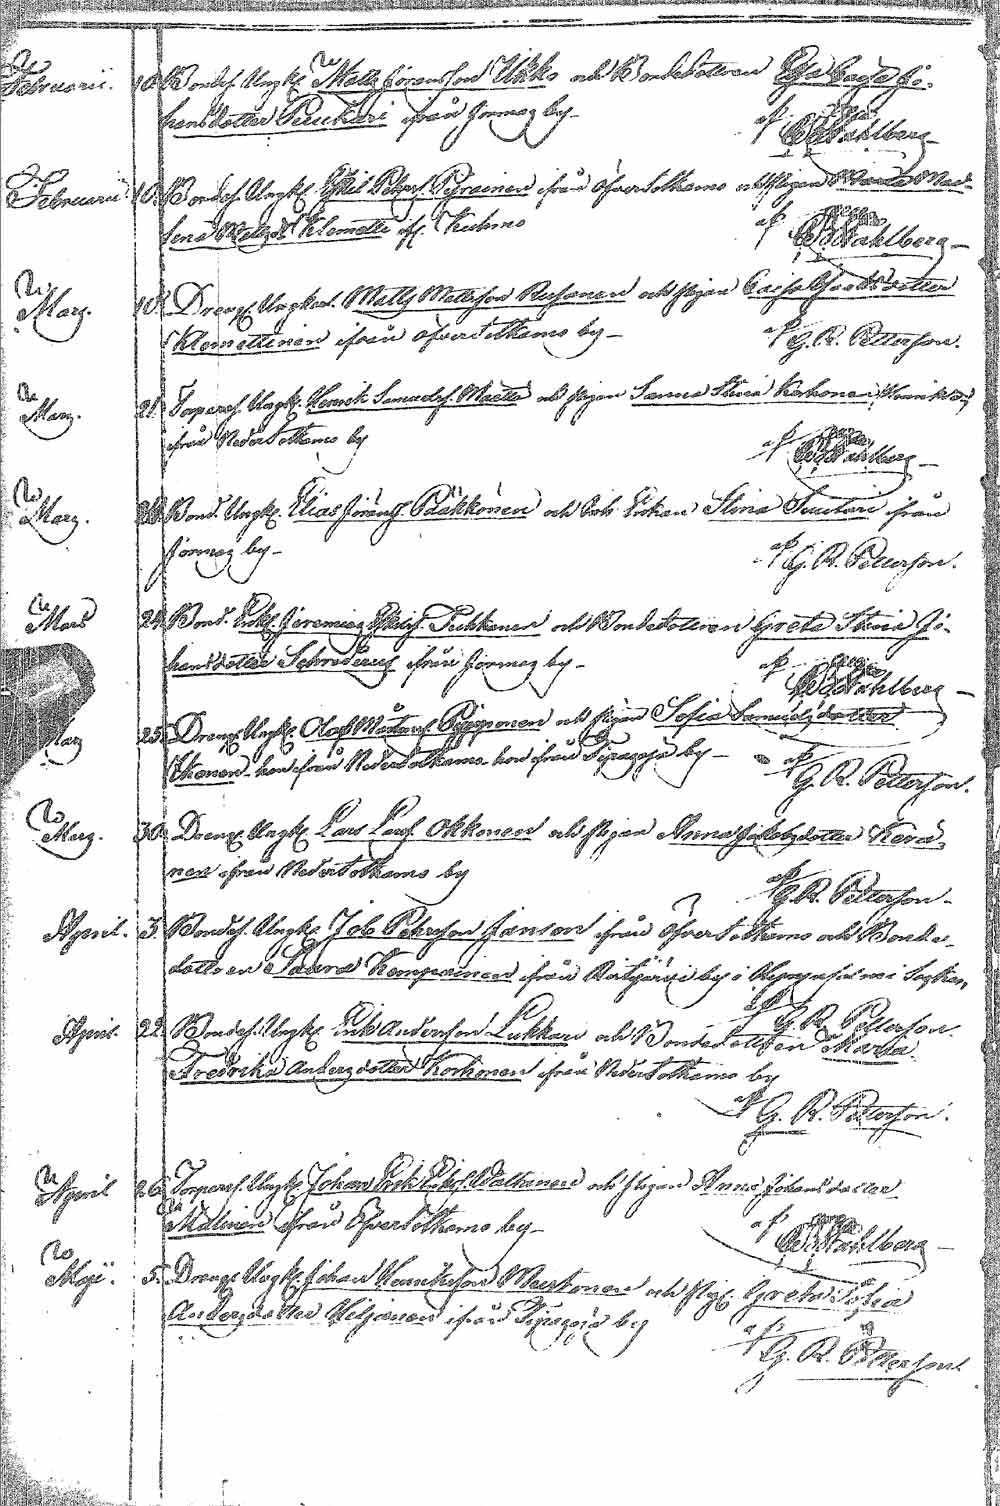 Februarii. 10. Bondes. Ungk. Matts Göransson Ukko och Bondedottren Eva Caisa Jo-
hansdotter Peuckuri ifrån Jormas by
af C. G. Wahlberg
Februarii 10. Bondes. Ungk. Eskil Pehrs. Pyrainen ifrån Öfversotkamo och Pigan Mag-
lena Mattsd. Klemetti if. Kuhmo
af C. G. Wahlberg
Mars. 10. Drengs. Ungkarl. Matts Mattsson Rusanen och pigan Caisa dotter
Klemettinen ifrån Öfversotkamo by
af G. R. Petterson.
Mars. 21. Torpares. Ungk. Henrik Samuels. Määttä och pigan Sanna Stina Korhonen Henriksd.
ifrån Nedersotkamo by
af C. G. Wahlberg
Mars. Bond. Ungk. Elias Görans. Pääkkönen och Enkan Stina Suutari ifrån
Jormas by
af G. R. Petterson.
Mars 24. Bond. Enkl. Jeremias Eskils. Tuhkanen och Bondedottren Greta Stina Jo-
hansdotter Schroderus ifrån Jormas by
af C. G. Wahlberg
Mars 25. Drengs. Ungk. Olof Mårtens. Piipponen och pigan Sofia Samuelsdotter
han ifrån Nedersotkamo hon ifrån Tipasoja by
af G. R. Petterson.
Mars. 30. Drengs. Ungk. Lars Lars. Okkonen och pigan Anna Jakobsdotter Kerä-
nen ifrån Nedersotkamo by
af G. R. Petterson
April. 3. Bondes. Ungk. Job Pehrsson Janson ifrån Öfversotkamo och Bonde-
dottren Saara Kompainen ifrån by i Socken
af G. R. Petterson
April. 22. Bondes. Ungk. Erik Andersson Lukkari och Bondedottren Maria
Fredrika Andersdotter Korhonen ifrån Nedersotkamo by
af G. R. Petterson.
April 26. Torpares. Ungk. Johan Erik Eriks. Waltanen och pigan Anna Johansdotter
Malinen ifrån Öfversotkamo by
af C. G. Wahlberg
Maji. 5. Drengs. Ungk. Johan Henriksson Mustonen och pig. Greta Sofia
Andersdotter Kiljanen ifrån Tipasoja by
af G. R. Petterson.